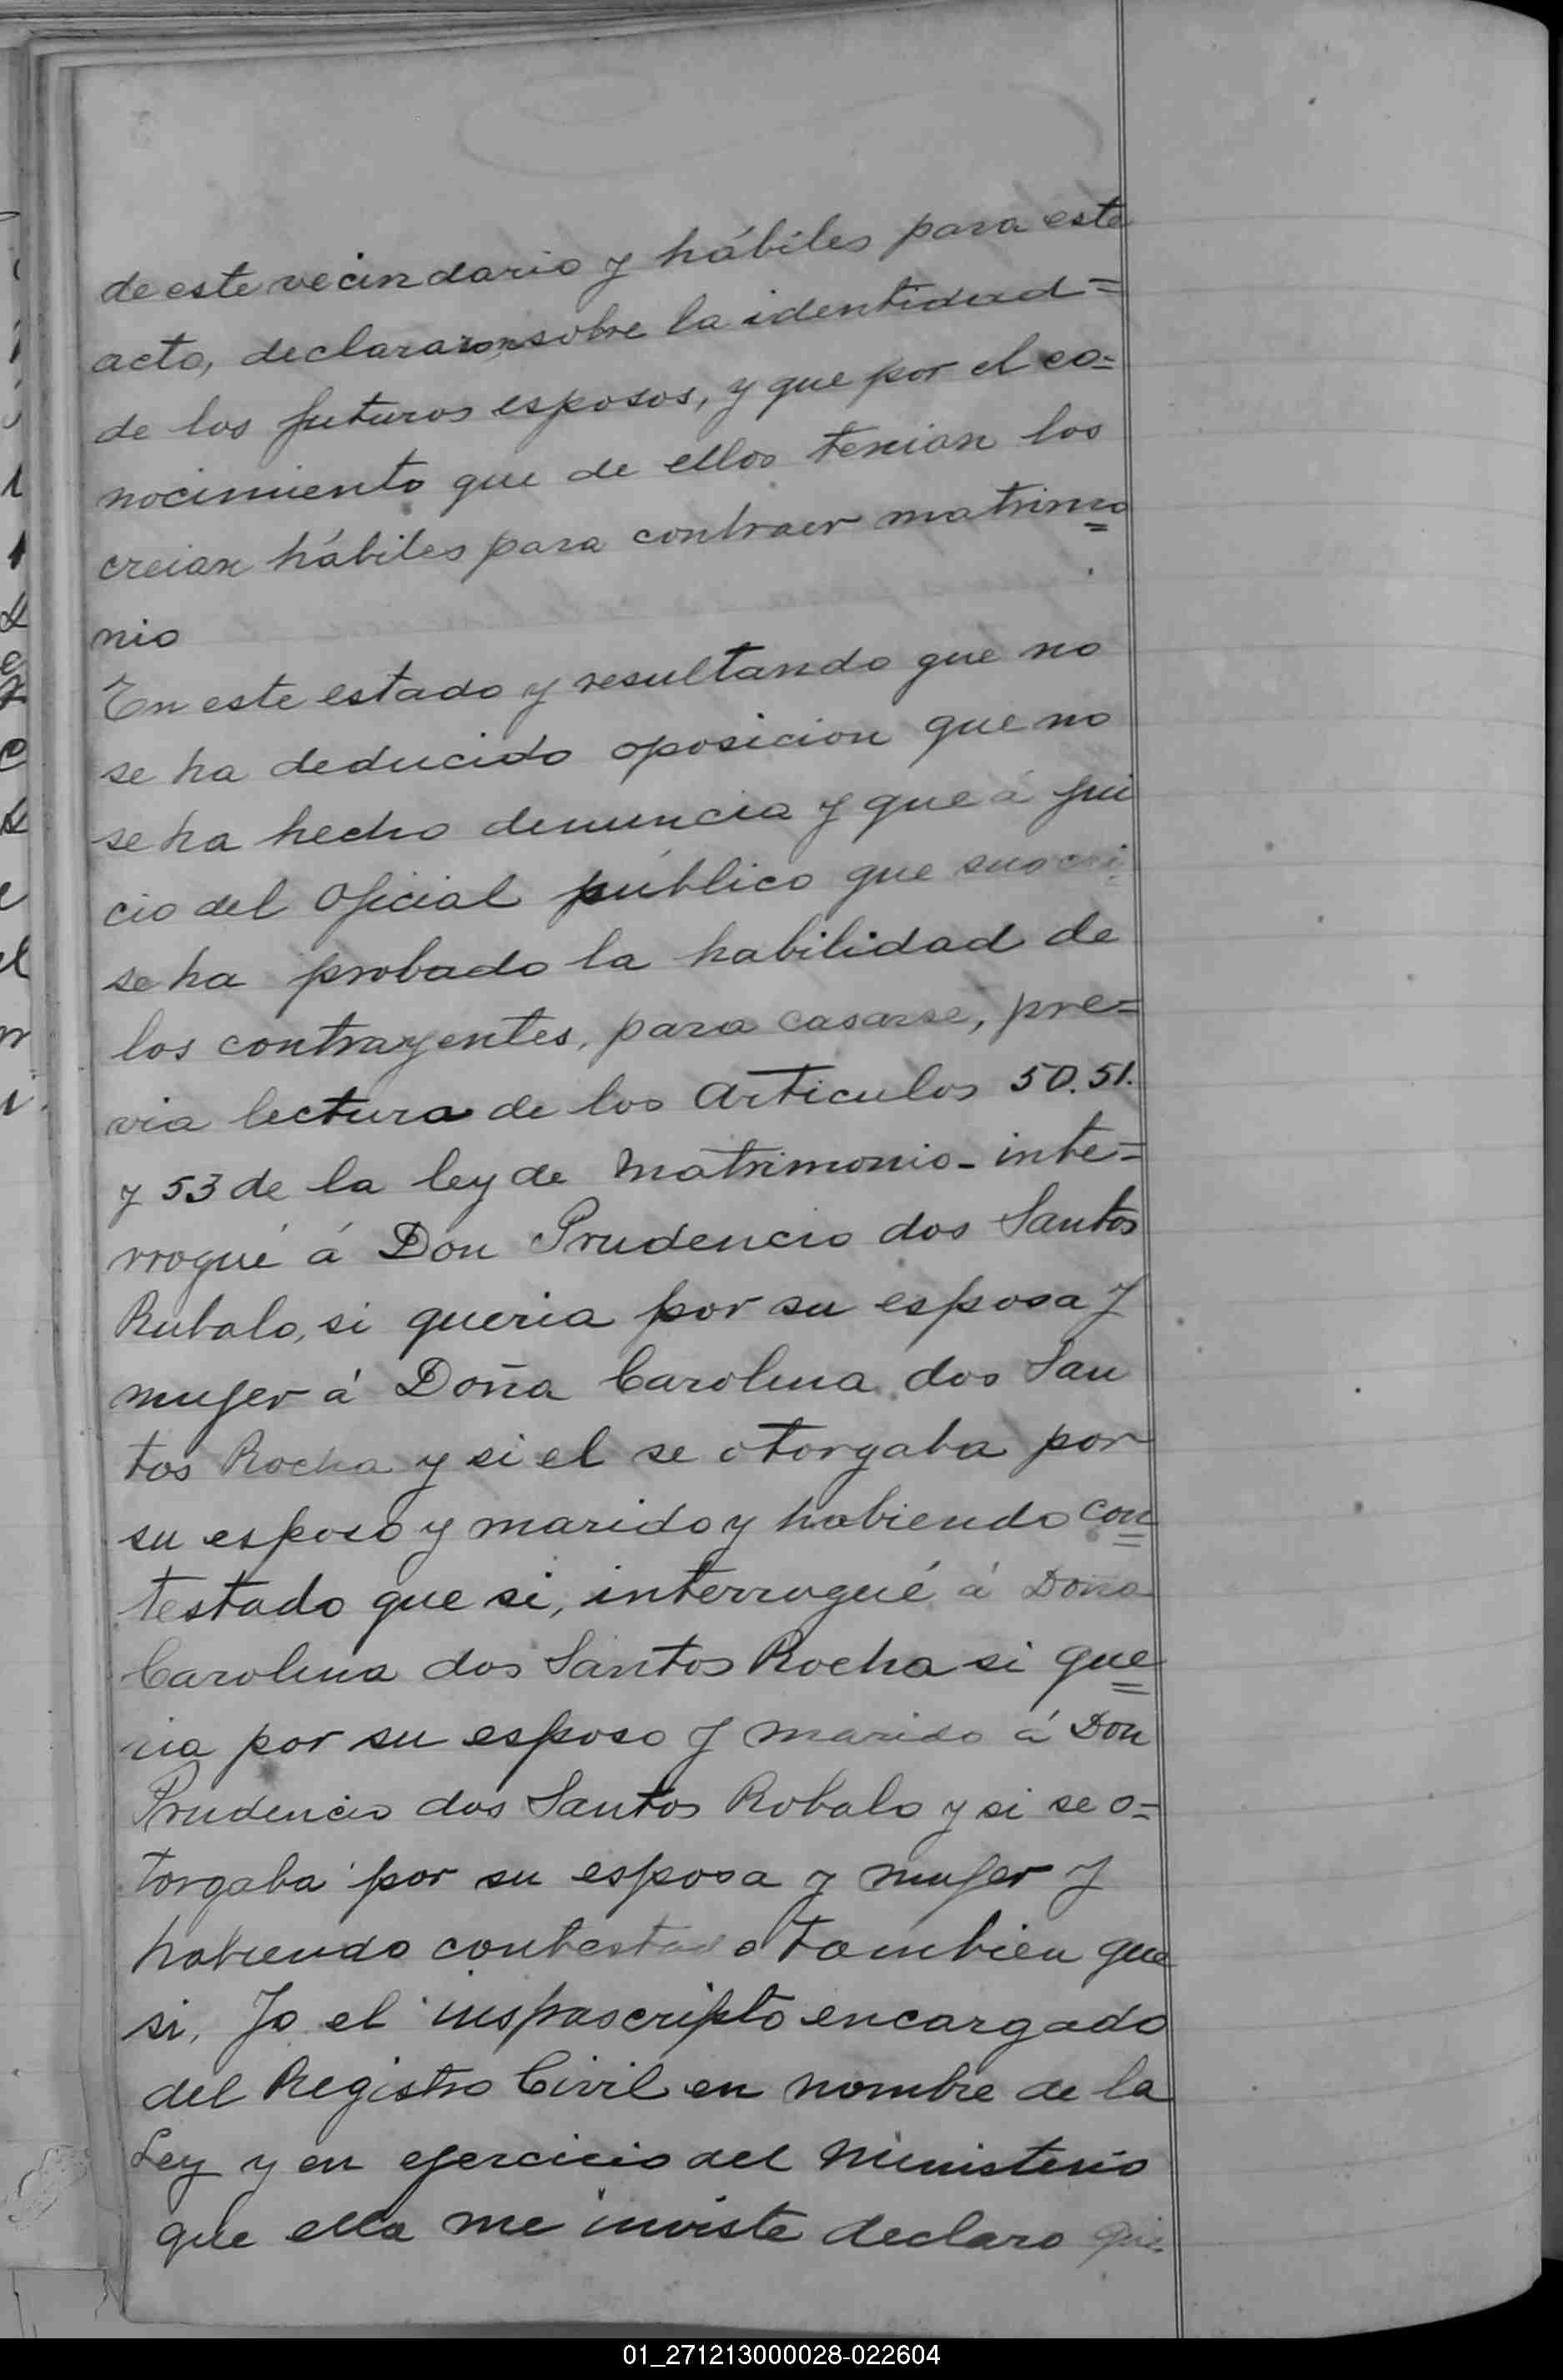 de este vecindario y hábiles para este
acto, declararon sobre la identidad=
de los futuros esposos, y que por el co=
nocimiento que de ellos tenian los
creian hábiles para contraer matrimo=
nio
En este estado y resultando que no
se ha deducido oposicion que no
se ha hecho denuncia y que á jui
cio del Oficial público que suscri=
se ha probado la habilidad de
los contrayentes, para casarse, pre=
via lectura de los Articulos 50. 51.
y 53 de la ley de Matrimonio - inte=
rrogué á Don Prudencio dos Santos
Rubalo, si queria por su esposa y
mujer á Doña Carolina dos San
tos Rocha y si el se otorgaba por
su esposo y marido y habiendo con=
testado que si, interrogué á Doña
Carolina dos Santos Rocha si que=
ria por su esposo y marido á Don
Prudencio dos Santos Robalo y si se o=
torgaba por su esposa y mujer y
habiendo contestado tambien que
si, Yo el inspascripto encargado
del Registro Civil en nombre de la
Ley y en ejercicio del Ministerio
que ella me inviste declaro que
01_271213000028-022604